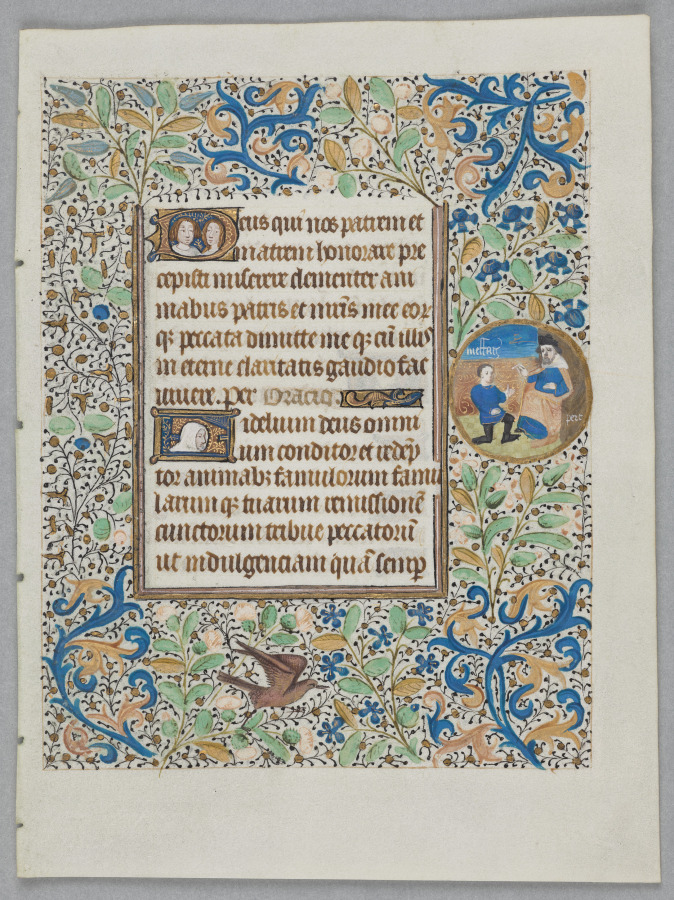 Deus qui nos patrem et
matrem honorare pre
cepisti miserere clementer ani
mabus patris et mr̄is mee eor
q̄ peccata dimitte me q̄ cū illis
in eterne claritatis gaudio fac
uiuere. Per Oracio
Fidelium deus omni
ium conditor et redēp
tor animabz famulorum famu
larum q̄ tuarum remissionē
cunctorum tribue peccatorū
ut indulgenciam quā semp̄